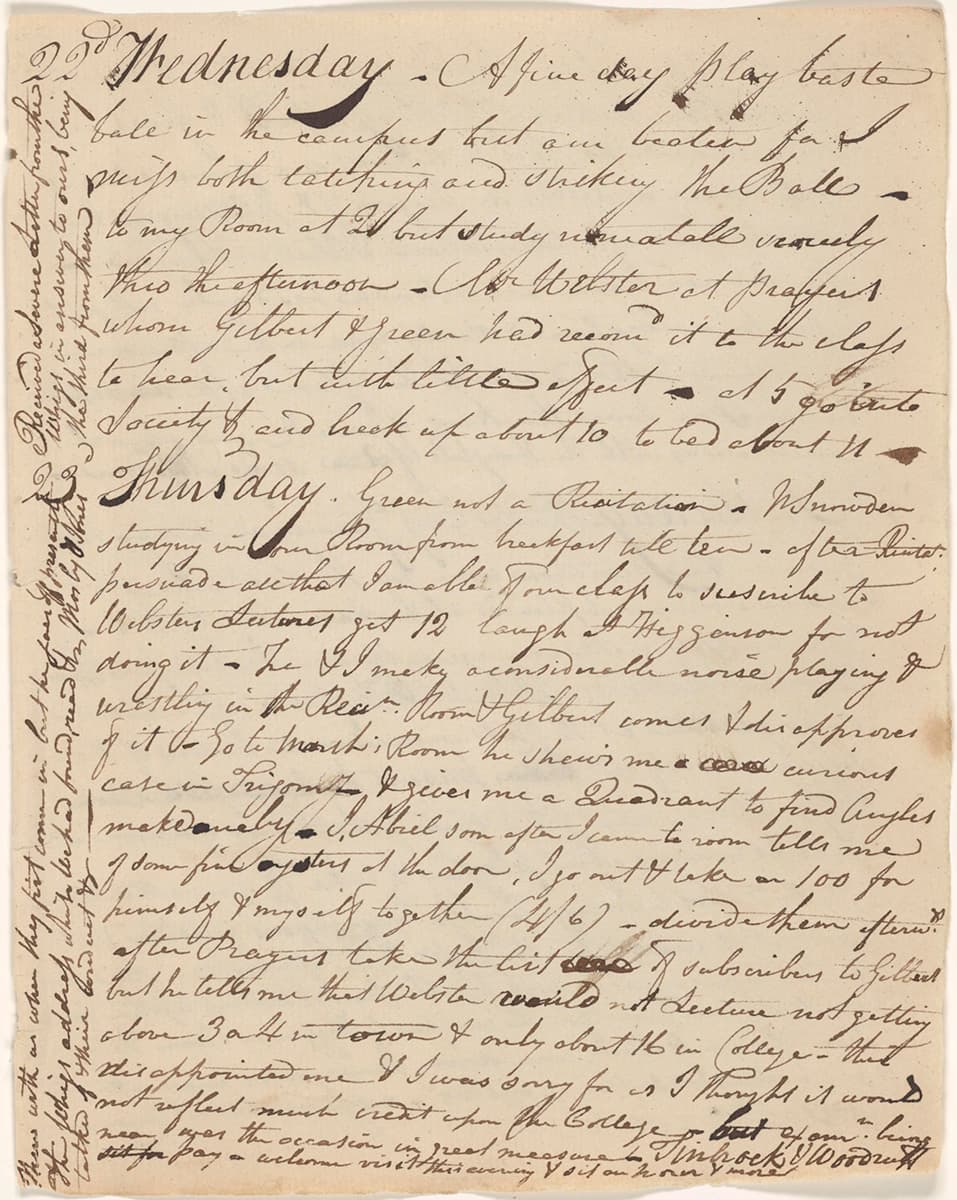 22d Wednesday - A fine day play baste
ball in the campus but am beaten for I
miss both catching and striking the Ball -
to my Room at 2 but study none at all scarcely
thro the afternoon - Mr Webster at prayers
whom Gilbert & Green had recomd it to the class
to hear, but with little effect - at 5 go into
Society & and break up about 10 to bed about 11 -
23 Thursday. Green not a Recitation - N Snowden
studying in our Room from breakfast till ten - after Recitat.
persuade all that I am able of our class to suscribe to
Websters Lectures get 12 laugh at Higginson for not
doing it - He & I make a considerable noise playing &
wrestling in the Recitn. Room & Gilbert comes & disapproves
of it - Go to Marsh's Room he shews me a curious
case in Trigomy - & gives me a Quadrant to find Angles
make one by - J. Abiel soon after I came to room tells me
of some fine oysters at the door, I go out & take an 100 for
himself & myself together (4/6) - divide them afterwds
after Prayers take the list of subscribers to Gilbert
but he tells me that Webster would not Lecture not getting
above 3 or 4 in town & only about 16 in College - this
disappointed me & I was sorry for as I thought it would
not reflect much credit upon the College - but examn. being
near was the occasion in great measure - Tinbrook & Woodruff
sit for pay a welcome visit this evening & sit an hour & more
Received a severe letter from the
Whigs in answer to ours, being
the third from them -
There with as when they first came in but the pair of presents
of the Whigs address which we had found, read by Morby & Jones
talked of their conduct &